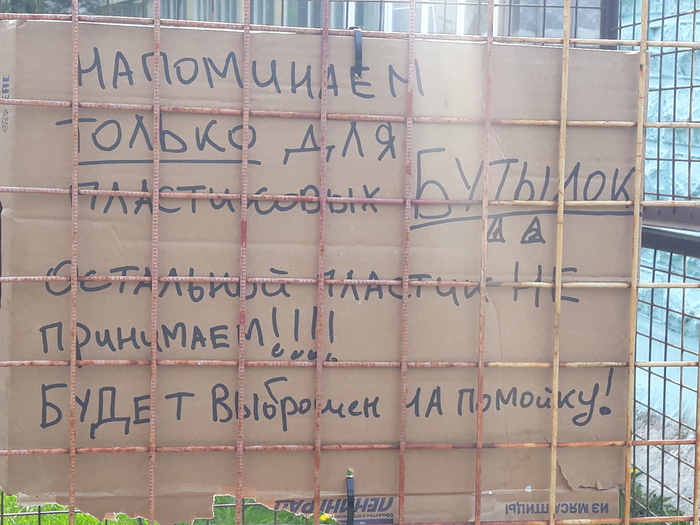 НАПОМИНАЕМ
ТОЛЬКО ДЛЯ
ПЛАСТИКОВЫХ БУТЫЛОК
ОСТАЛЬНОЙ ПЛАСТИК НЕ
ПРИНИМАЕМ!!!!
БУДЕТ ВЫБРОШЕН НА ПОМОЙКУ!
ЛЕНИНГРАД
ИЗ МЯСА ПТИЦЫ